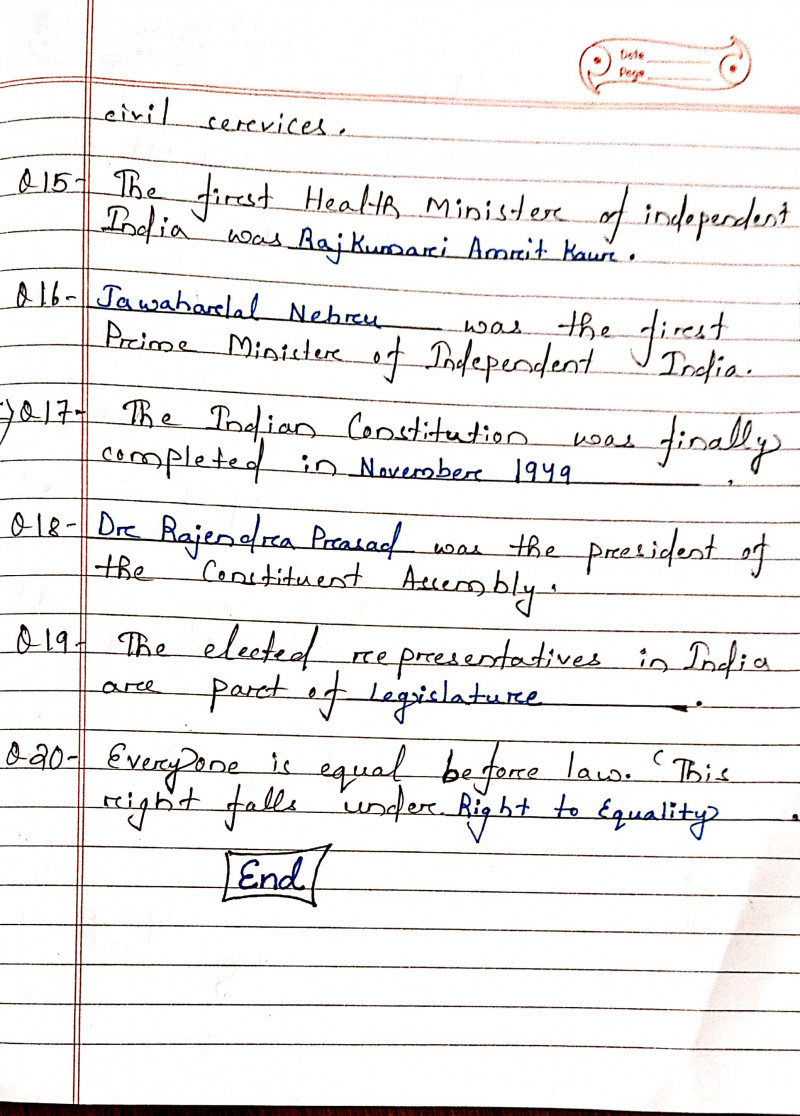 Date
Page
civil services.
Q15- The first Health Minister of independent
India was Rajkumari Amrit Kaur.
Q16- Jawaharlal Nehru was the first
Prime Minister of Independent India.
Q17- The Indian Constitution was finally
completed in November 1949.
Q18- Dr Rajendra Prasad was the president of
the Constituent Assembly.
Q19- The elected representatives in India
are part of Legislature.
Q20- Everyone is equal before law. ' This
right falls under Right to Equality.
End